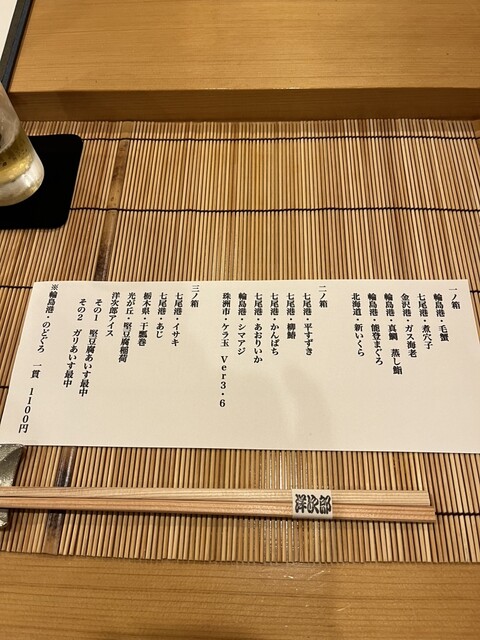 一ノ箱
輪島港・毛蟹
七尾港・煮穴子
金沢港・ガス海老
輪島港・真鯛 蒸し鮨
輪島港・能登まぐろ
北海道・新いくら
二ノ箱
七尾港・平すずき
七尾港・柳鰆
七尾港・かんぱち
七尾港・あおりいか
輪島港・シマアジ
珠洲市・ケラ玉 Ver3・6
三ノ箱
七尾港・イサキ
七尾港・あじ
栃木県・干瓢巻
光が丘・堅豆腐稲荷
洋次郎アイス
その1 堅豆腐あいす最中
その2 ガリあいす最中
※輪島港・のどぐろ 一貫 1100円
洋次郎